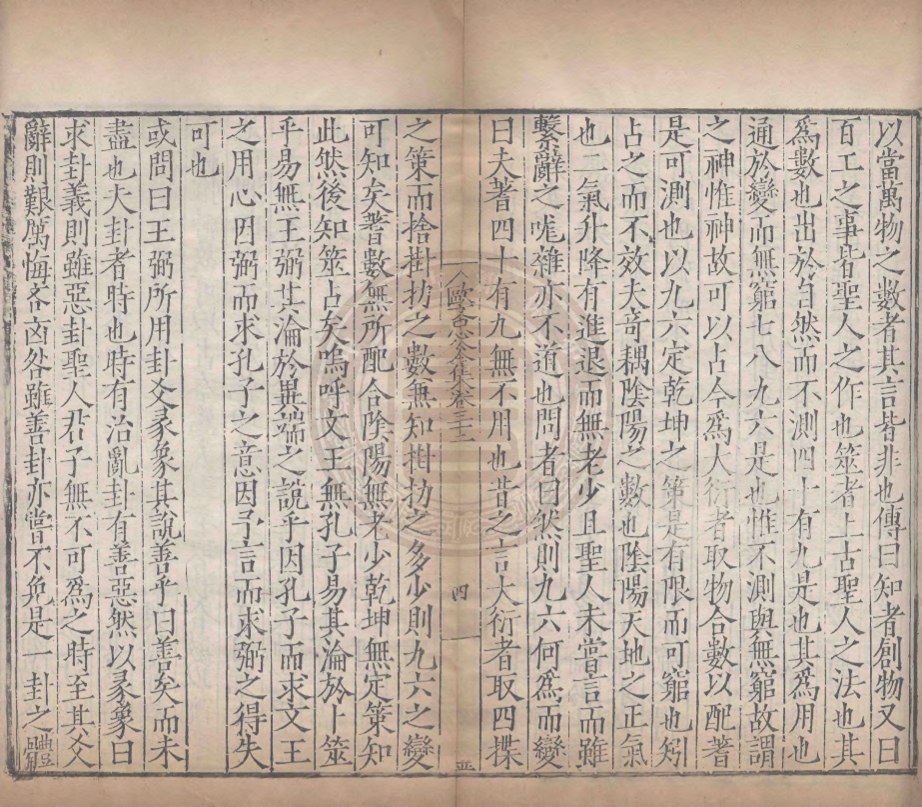 以當萬物之數者其言皆非也傳曰知者創物又曰
百工之事皆聖人之作也筮者上古聖人之法也其
爲數也出於自然而不測四十有九是也其爲用也
通於變而無窮七八九六是也惟不測與無窮故謂
之神惟神故可以占今爲大衍者取物合數以配蓍
是可測也以九六定乾坤之策是有限而可窮也矧
占之而不效夫竒耦陰陽之數也陰陽天地之正氣
也二氣升降有進退而無老少且聖人未嘗言而雖
繫辭之厖雜亦不道也問者曰然則九六何爲而變
曰夫蓍四十有九無不用也昔之言大衍者取四揲
歐文忠全集卷三十三
四
之策而捨掛扐之數無知掛扐之多少則九六之變
可知矣蓍數無所配合陰陽無老少乾坤無定策知
此然後知筮占矣嗚呼文王無孔子易其淪於卜筮
乎易無王弼其淪於異端之說乎因孔子而求文王
之用心因弼而求孔子之意因予言而求弼之得失
可也
或問曰王弼所用卦爻彖象其說善乎曰善矣而未
盡也夫卦者時也時有治亂卦有善惡然以彖象曰
求卦義則雖惡卦聖人君子無不可爲之時至其爻
辭則艱厲悔吝凶咎雖善卦亦嘗不免是一卦之體